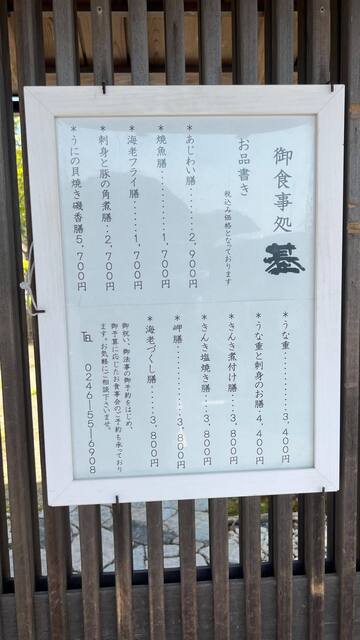 御食事処
お品書き
税込み価格となっております
＊あじわい膳‥‥‥2,900円
＊焼魚膳‥‥‥‥‥1,700円
＊海老フライ膳‥‥‥1,700円
＊刺身と豚の角煮膳‥2,700円
＊うにの貝焼き磯香膳5,700円
＊うな重‥‥‥‥‥3,400円
＊うな重と刺身のお膳‥4,400円
＊きんき煮付け膳‥‥3,800円
＊きんき塩焼き膳‥‥3,800円
＊岬膳‥‥‥‥‥‥3,800円
＊海老づくし膳‥‥‥3,800円
御祝い、御法事の御予約をはじめ、
御予算に応じたお食事会のご予約も承っており
ます。お気軽にご相談下さいませ。
TEL 0246―55―6908